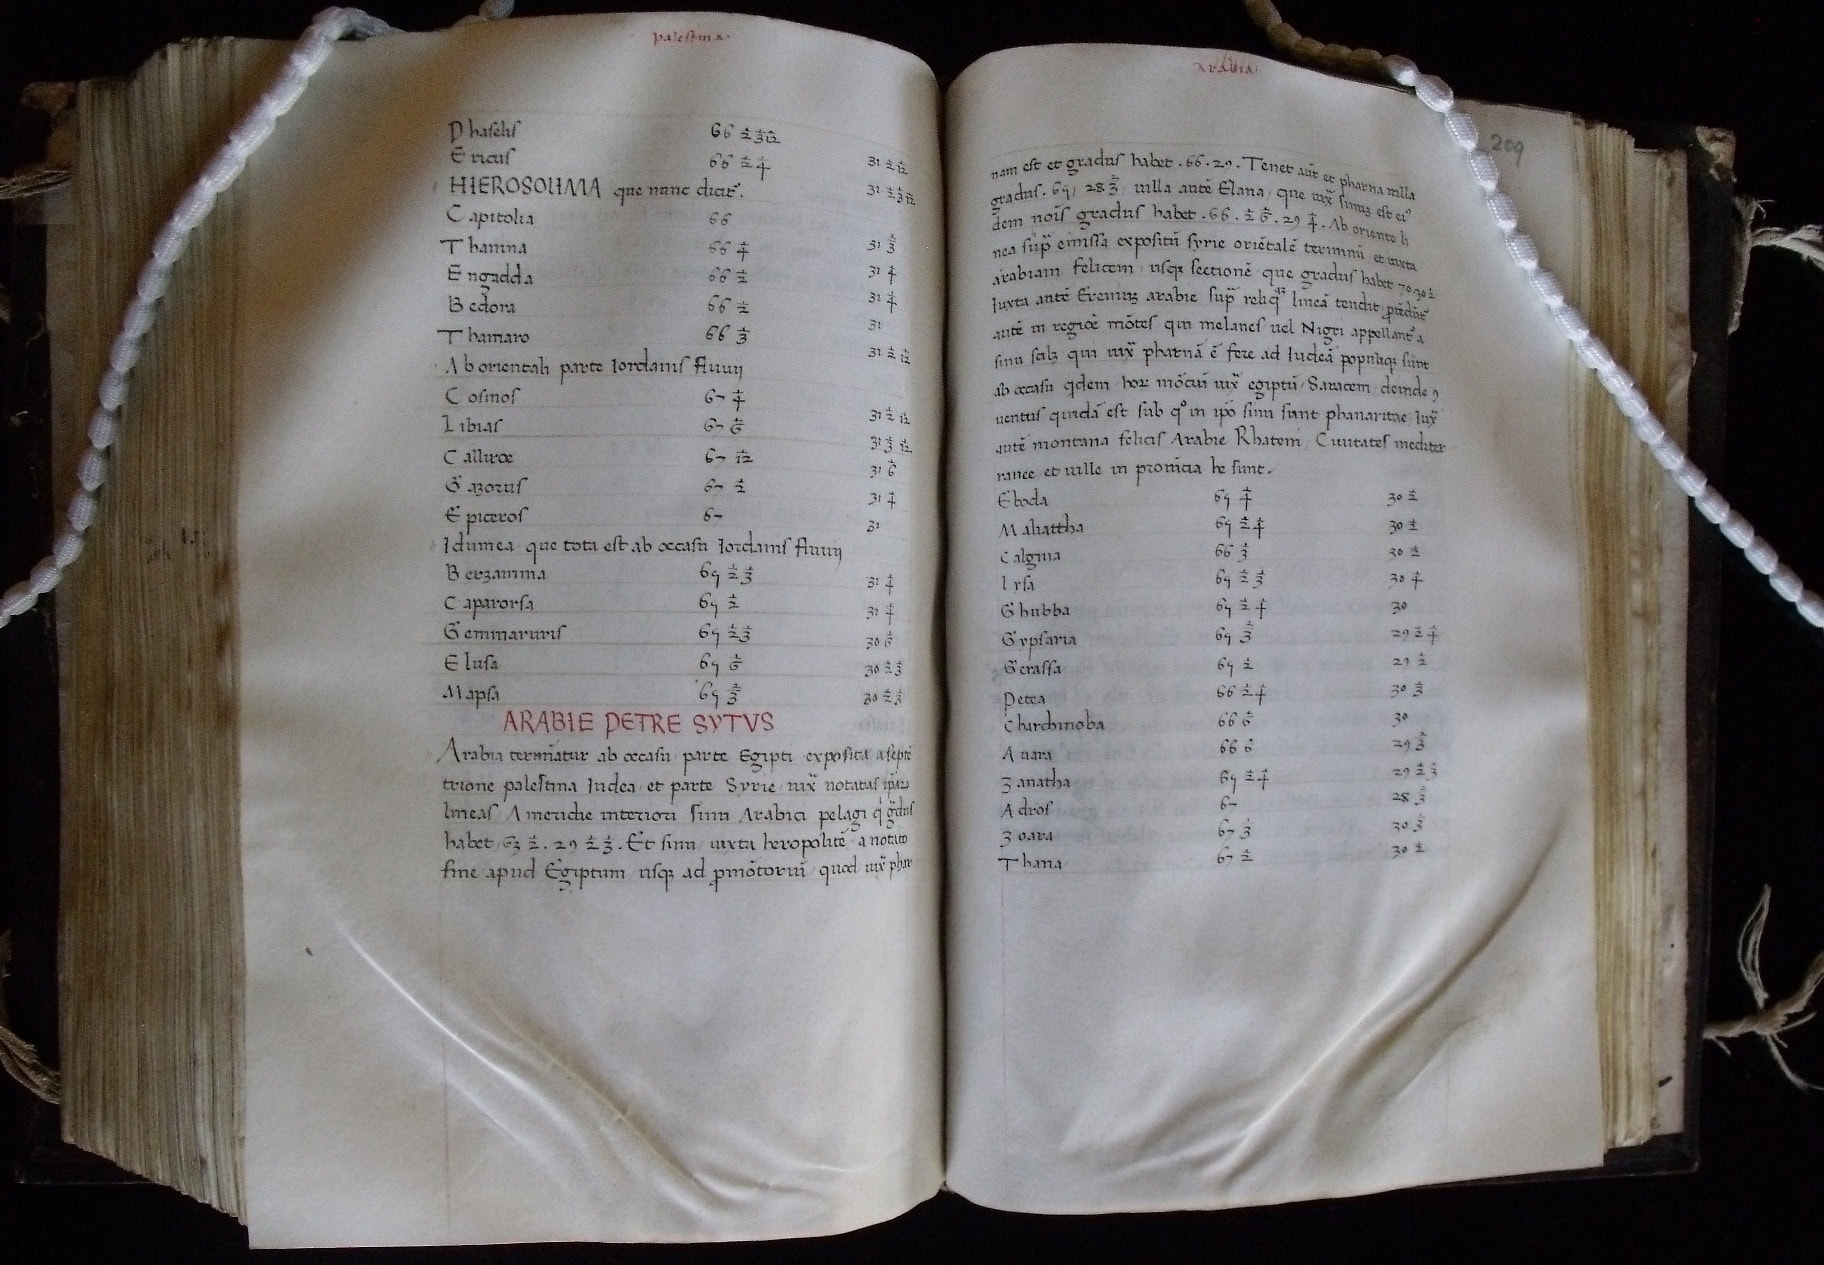 palestina.
Phaselis 66 ½ ⅓ 1/12
Ericus 66 ½ ¼ 31 ½ 1/12
HIEROSOLIMA que nunc dicit̃. 31 ½ ⅓ 1/12
Capitolia 66
Thanina 66 ¼ 31 ⅔
Engadda 66 ½ 31 ¼
Bedora 66 ½ 31 ¼
Thamaro 66 ⅓ 31
Ab orientali parte Iordanis fluuij 31 ½ 1/12
Cosmos 67 ¼
Libias 67 ⅙ 31 ½ 1/12
Calliroe 67 1/12 31 ⅓ 1/12
Gazorus 67 ½ 31 ⅙
Epiceros 67 31 ¼
31
Idumea que tota est ab occasu Iordanis fluuij
Berzamma 64 ½ ⅓ 31 ¼
Caparorsa 64 ½ 31 ¼
Gemmaruris 64 ½ ⅓ 30 ⅙
Elusa 64 ⅙ 30 ½ ⅓
Mapsa 64 ⅔ 30 ½ ⅓
ARABIE PETRE SYTUS
Arabia terminatur ab occasu parte Egipti exposita a septẽ
trione palestina Iudea et parte Syrie iux̃ notatas ip̃aꝝ
lineas A meridie interiori sinu Arabici pelagi q̃ g̃dus
habet 63 ½ . 29 ½ ⅓ . Et sinu iuxta heropolitẽ a notato
fine apud Egiptum usqꝫ ad p̃mõtoriũ quod iux̃ phar
Arabia
209
nam est et gradus habet .66. 29. Tenet aut̃ et pharna uilla
gradus .64 28 ⅔ uilla autẽ Elana que iux̃ sinus est ei9
dem noĩs gradus habet .66. ½ ⅙ . 29 ¼ . Ab oriente li
nea sup̃ emissa expositũ syrie oriẽtalẽ termini et iuxta
arabiam felicem usqꝫ sectionẽ que gradus habet 70. 30 ½
Iuxta autẽ Eremuꝫ arabie sup̃ reliq̃ lineã tendit
autẽ in regiõe mõtes qui melanes uel Nigri appellant̃ a
sinu scilꝫ qui iux̃ pharnã ẽ fere ad Iudeã popriqꝫ sunt
ab occasu q̃dem hoꝝ mõtiũ iux̃ egiptũ Saraceni deinde
uentus quidã est sub q̃ in ip̃o sinu sunt phanaritae Iux̃
autẽ montana felicis Arabie Rhateni Ciuitates mediter
ranee et uille in prouincia he sunt.
Eboda 64 ¼ 30 ½
Maliattha 64 ½ ¼ 30 ½
Calguia 66 ⅓ 30 ½
Lysa 64 ½ ⅓ 30 ¼
Ghubba 64 ½ ¼ 30
Gypsaria 64 ⅔ 29 ½ ¼
Gerassa 64 ½ 29 ½
Petra 66 ½ ¼ 30 ⅓
Charchmoba 66 ⅙ 30
Auara 66 ⅙ 29 ⅔
Zanatha 64 ½ ¼ 29 ½ ⅓
Adros 67 28 ⅔
Zoara 67 ⅓ 30 ⅔
Thana 67 ½ 30 ½